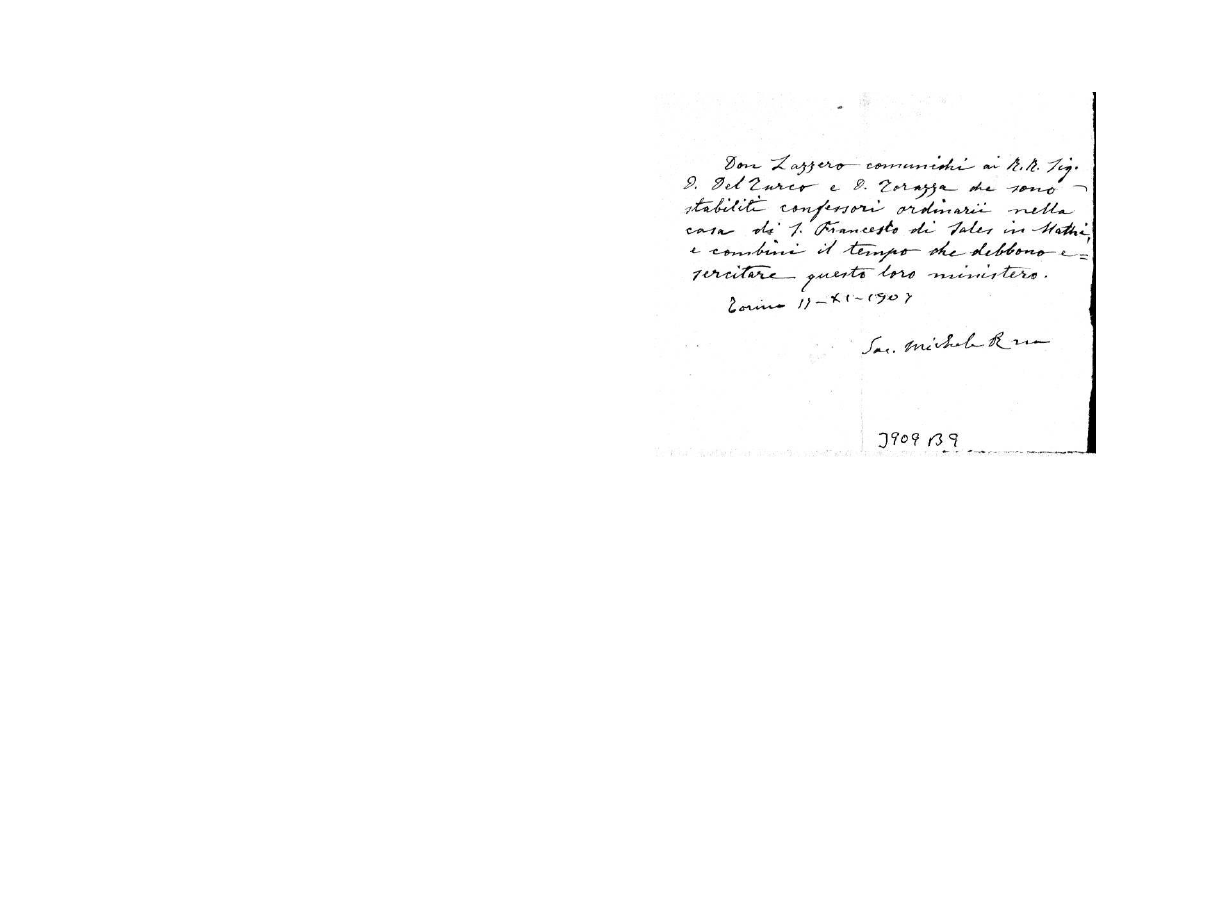 Don Lazzero comunichi ai R.R. Sig.
D. Del Turco e D. Torazza che sono
stabiliti confessori ordinarii nella
casa di S. Francesto di Sales in Mathi,
e combini il tempo che debbono e=
sercitare questo loro ministero.
Torino 11-XI-1907
Sac. Michele Rua
3909 B9